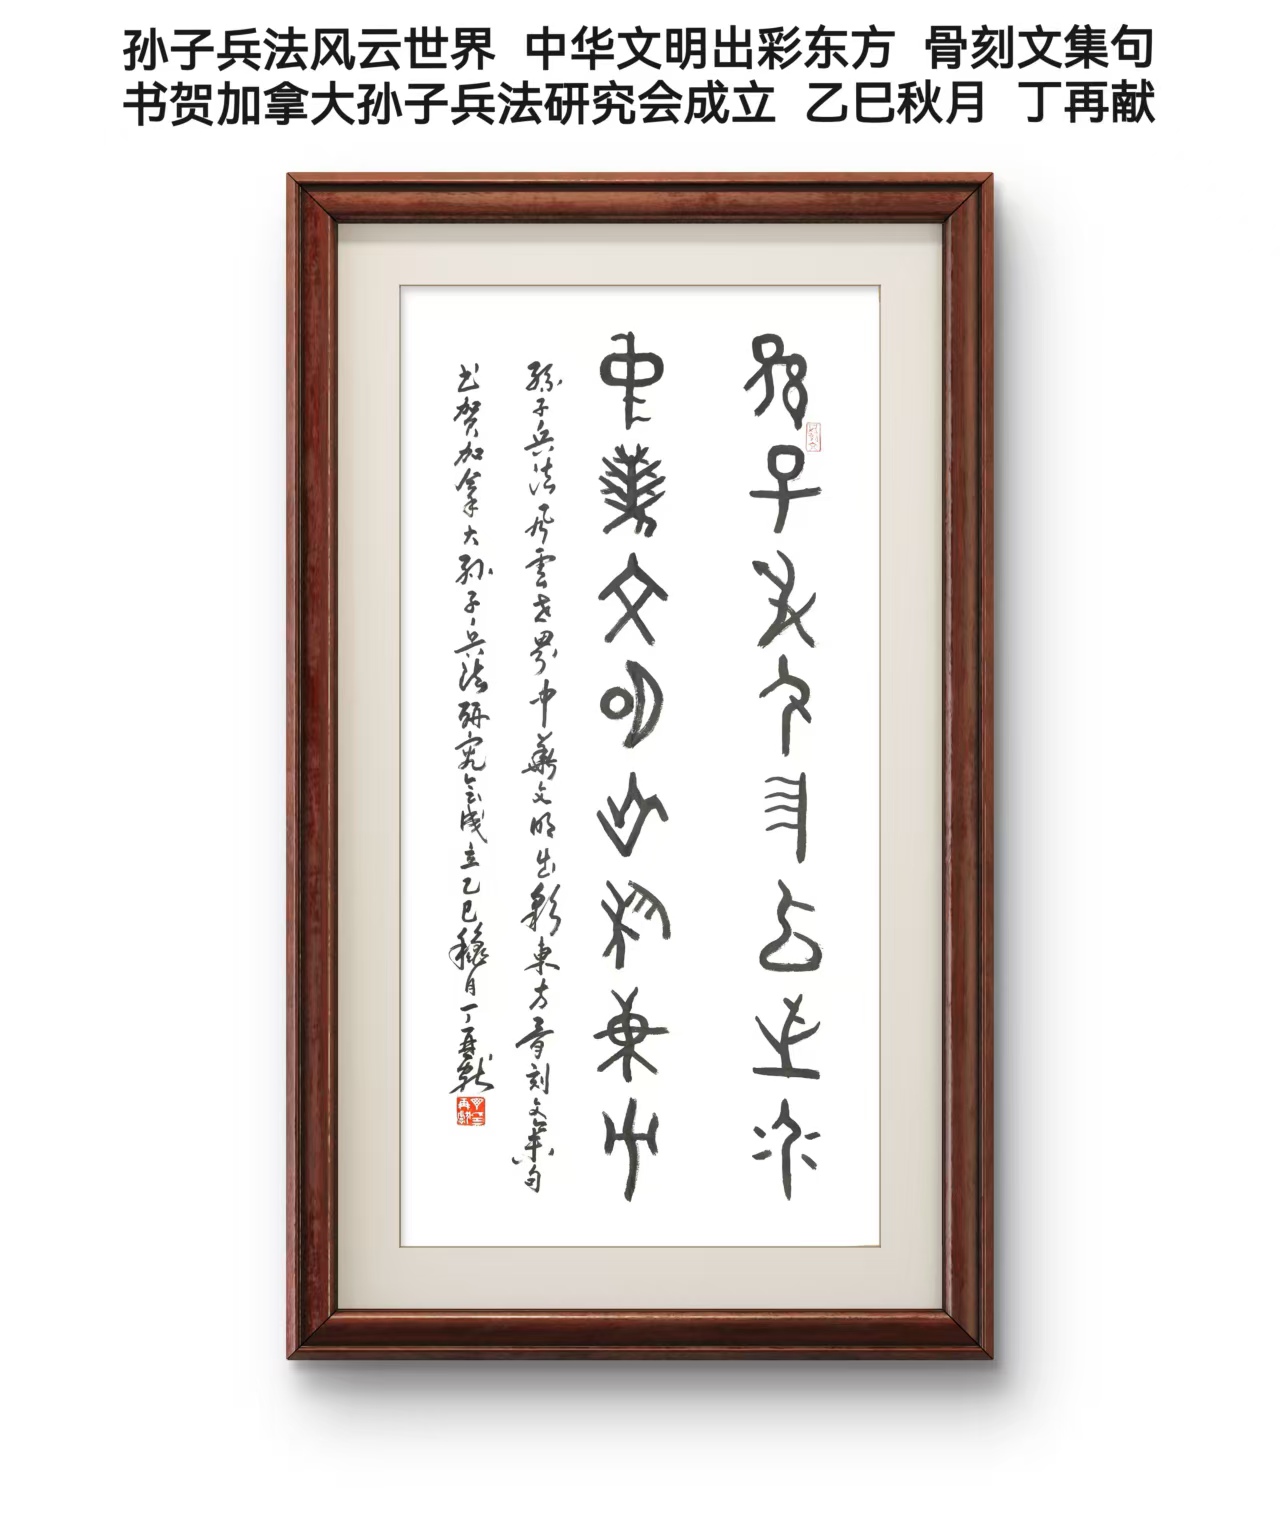 孙子兵法风云世界 中华文明出彩东方 骨刻文集句
书贺加拿大孙子兵法研究会成立 乙巳秋月 丁再献
孫子兵法風雲世界
中華文明出彩東方
孫子兵法風雲世界中華文明出彩東方骨刻文集句
书贺加拿大孫子兵法研究会成立乙巳穐月丁再献